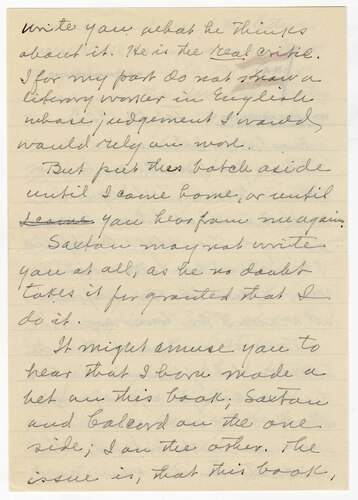 write you what he thinks
about it. He is the real critic.
I for my part do not know a
literary worker in English
whose judgement I would,
would rely on more.
But put this batch aside
until I come home, or until
I come you hear from me again.
Saxton may not write
you at all, as he no doubt
takes it for granted that I
do it.
It might amuse you to
hear that I have made a
bet on this book; Saxton
and Colcord on the one
side; I on the other. The
issue is, that this book,